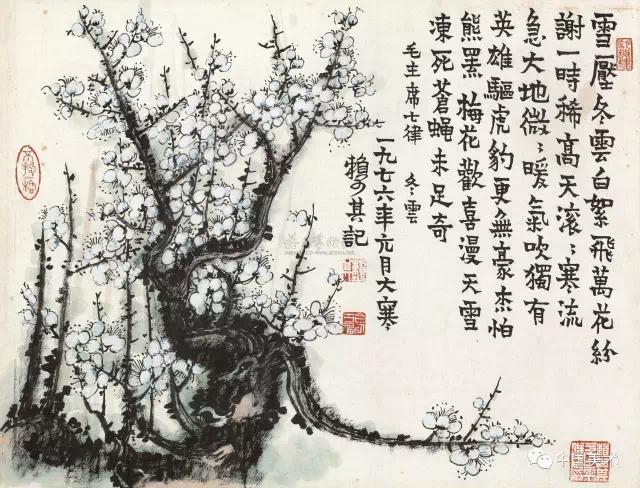 雪壓冬雲白絮飛萬花紛
謝一時稀高天滾〻寒流
急大地微〻暖氣吹獨有
英雄驅虎豹更無豪杰怕
熊羆梅花歡喜漫天雪
凍死蒼蠅未足奇
毛主席七律 冬雲
一九七六年元月大寒
賴少其記
中国美术